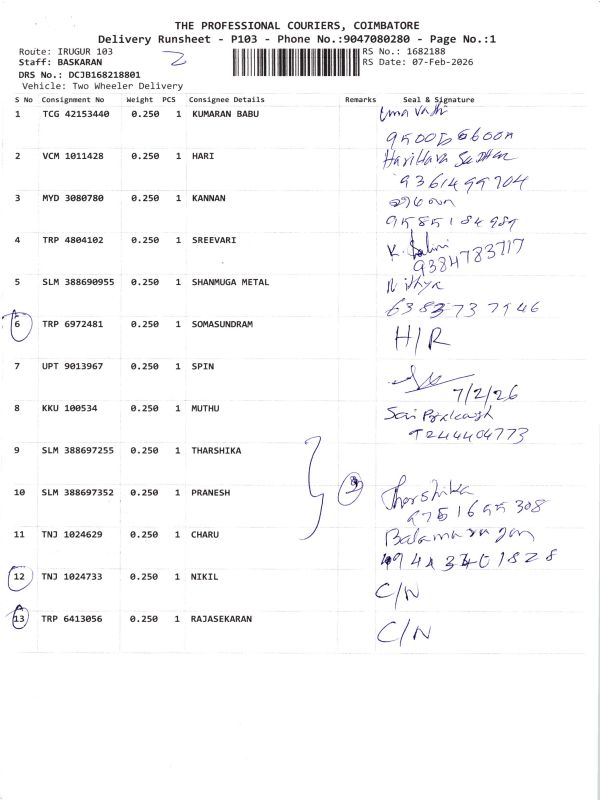 THE PROFESSIONAL COURIERS, COIMBATORE
Delivery Runsheet - P103 - Phone No.:9047080280 - Page No.:1
Route: IRUGUR 103
Staff: BASKARAN
DRS No.: DCJB168218801
Vehicle: Two Wheeler Delivery
2
RS No.: 1682188
RS Date: 07-Feb-2026
S No Consignment No Weight PCS Consignee Details Remarks Seal & Signature
1 TCG 42153440 0.250 1 KUMARAN BABU Uma Vathi
2 VCM 1011428 0.250 1 HARI Hari Hara Sudhan
9361499704
3 MYD 3080780 0.250 1 KANNAN
9585184989
4 TRP 4804102 0.250 1 SREEVARI K.
9384783717
5 SLM 388690955 0.250 1 SHANMUGA METAL Nithya
6383737946
6 TRP 6972481 0.250 1 SOMASUNDRAM H/R
7 UPT 9013967 0.250 1 SPIN
7/2/26
8 KKU 100534 0.250 1 MUTHU Sai Prakash
9244404773
9 SLM 388697255 0.250 1 THARSHIKA
10 SLM 388697352 0.250 1 PRANESH Tharshika
9751695308
11 TNJ 1024629 0.250 1 CHARU Balamurugan
12 TNJ 1024733 0.250 1 NIKIL C/N
13 TRP 6413056 0.250 1 RAJASEKARAN C/N